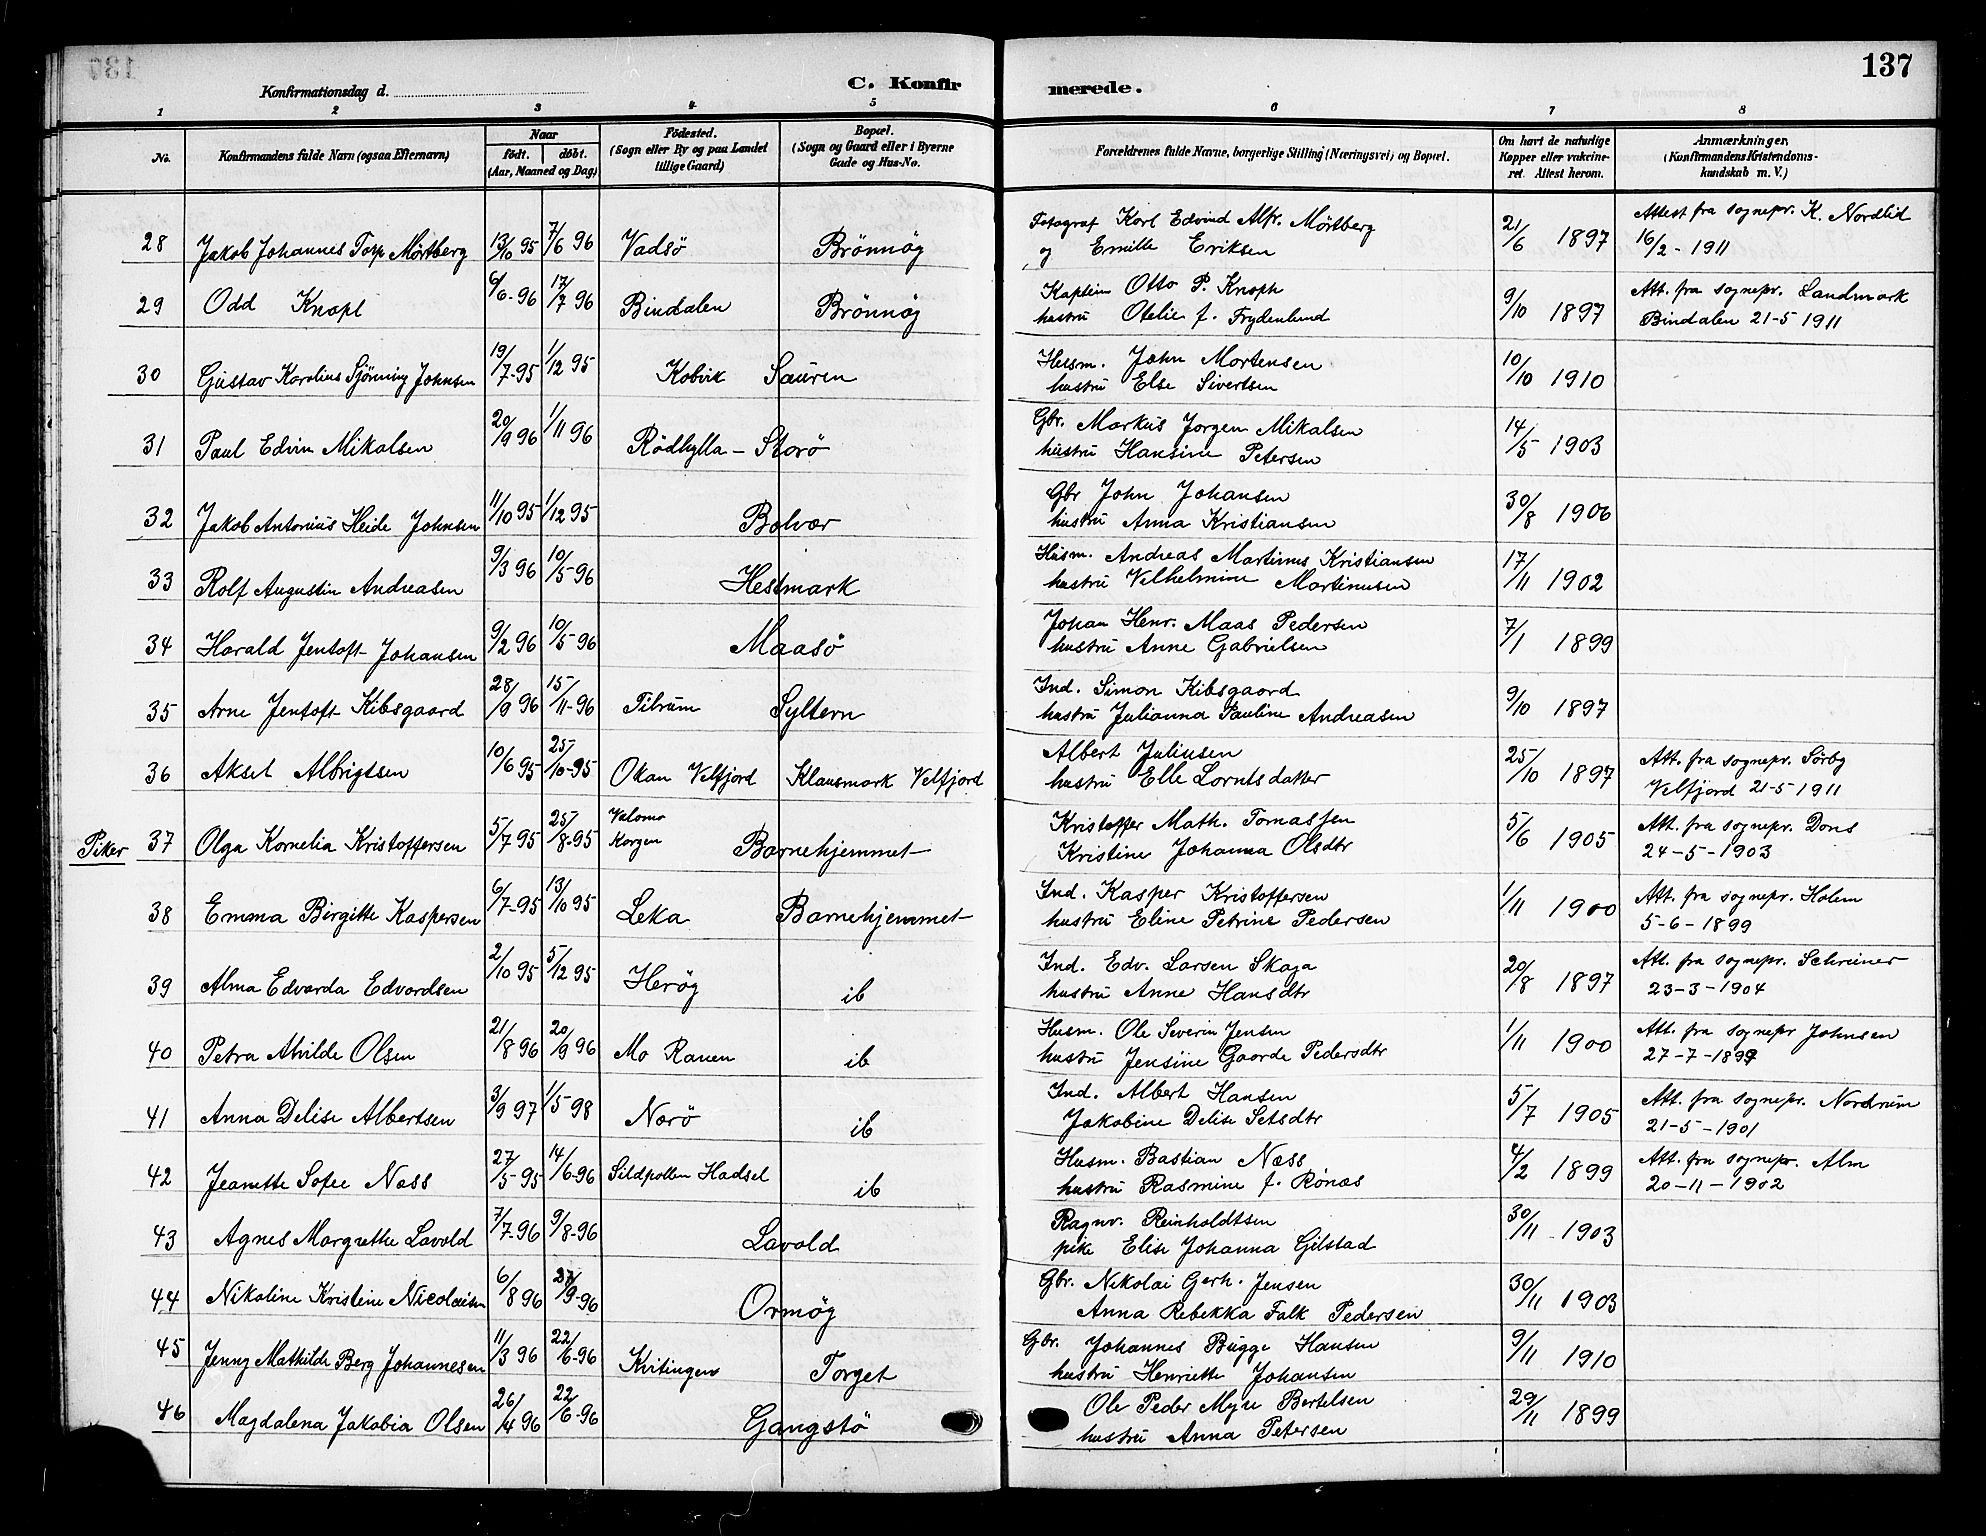 137
Konfirmationsdag d.
C. Konfirmerede.
1 2 3 4 5 6 7 8
No. Konfirmandens fulde Navn (ogsaa Efternavn) Naar født. døbt. (Aar, Maaned og Dag) Födested. (Sogn eller By og paa Landet tillige Gaard) Bopæl. (Sogn og Gaard eller i Byerne Gade og Hus-No. Forældrenes fulde Navne, borgerlige Stilling (Næringsvei) og Bopæl. Om havt de naturlige Kopper eller vakcineret. Attest herom. Anmærkninger, (Konfirmandens Kristendomskundskab m. V.)
28 Jakob Johannes Torp Mörtberg 13/10 95 7/6 96 Vadsö Brönnög Fotograf Karl Edvind Alfr. Mörtberg
og Emilie Eriksen 21/6 1897 Attest fra sognepr. K. Nordlid
16/2 - 1911
29 Odd Knopl 6/6-96 17/7 96 Bindalen Brönnög Kaptein Otto P. Knoph
hustru Otelie f. Frydenlund 9/10 1897 Att. fra sognepr. Landmark
Bindalen 21-5 1911
30 Gustav Karolius Sjönning Johnsen 19/7-95 1/12 95 Kobvik Sauren Hussm. John Mortensen
hustru Else Sivertsen 10/10 1910
31 Paul Edvin Mikalsen 20/9 96 1/11 96 Rödhylla - Storö Gbr. Markus Jorgen Mikalsen
hustru Hansine Petersen 14/5 1903
32 Jakob Antonius Heide Johnsen 11/10 95 1/12 95 Bolvær Gbr John Johansen
hustru Anna Kristiansen 30/8 1906
33 Rolf Augustin Andreasen 9/3 96 10/5-96 Hestmark Husm. Andreas Martinus Kristiansen
hustru Vilhelmine Martinusen 17/11 1902
34 Harald Jentoft Johansen 9/2 96 10/5-96 Maasö Johan Henr. Maas Pedersen
hustru Anne Gabrielsen 7/1 1899
35 Arne Jentoft Kibsgaard 28/9 96 15/11-96 Tilrum Syltern Ind. Simon Kibsgaard
hustru Julianna Pauline Andreasen 9/10 1897
36 Aksel Albrigtsen 10/6 95 25/10-95 Okan Velfjord Klausmark Velfjord Albert Juliusen
hustru Elle Lorntsdatter 25/10 1897 Att. fra sognepr. Sörby
Velfjord 21-5-1911
Piker 37 Olga Kornelia Kristoffersen 5/7 95 25/8-95 Korgen Barnehjemmet Kristoffer Math. Tomassen
Kristine Johanna Olsdtr 5/6 1905 Att. fra sognepr. Dons
24-5-1903
38 Emma Birgitte Kaspersen 6/7-95 13/10 95 Leka Barnehjemmet Ind. Kasper Kristoffersen
hustru Eline Petrine Pedersen 1/11 1900 Att. fra sognepr. Holem
5-6-1899
39 Alma Edvarda Edvardsen 2/10 95 5/12 95 Heröy ib Ind. Edv. Larsen Skaga
hustru Anne Hansdtr 20/8 1897 Att. fra sognepr. Schreiner
23-3-1904
40 Petra Alvilde Olsen 21/8 96 20/9 96 Mo Ranen ib Husm. Ole Severin Jensen
hustru Jensine Gaarde Pedersdtr 1/11 1900 Att. fra sognepr Johnsen
27-7-1899
41 Anna Delise Albertsen 3/9 97 1/5-98 Nærö ib Ind. Albert Hansen
Jakobine Delise Setsdtr 5/7 1905 Att. fra sognepr. Nordrum
21-5-1901
42 Jeanette Sofie Næss 27/5-95 14/6-96 Sildpollen Hadsel ib Husm. Bastian Næss
hustru Rasmine f. Rönas 4/2 1899 Att. fra sognepr. Alm
20-11-1902
43 Agnes Margrethe Lavold 7/7-96 9/8-96 Lavold Ragnv. Reinholdtsen
pike Elise Johanna Gilstad 30/11 1903
44 Nikoline Kristine Nicolaisen 6/8 96 27/9-96 Ormög Gbr. Nikolai Gerh. Jensen
Anna Rebekka Falk Pedersen 30/11 1903
45 Jenny Mathilde Berg Johannesen 11/3 96 22/6-96 Kvitingen Torget Gbr. Johannes Bugge Hansen
hustru Henriette Johansen 9/11 1910
46 Magdalena Jakobia Olsen 26/4 96 22/6-96 Gangstö Ole Peder Myre Bertelsen
hustru Anna Petersen 29/11 1899